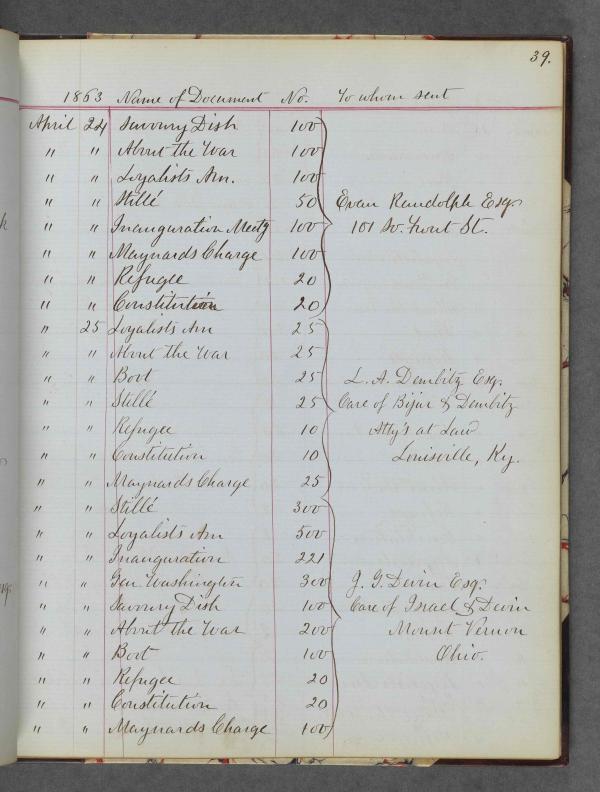 39.
1863 Name of Document No. To whom sent
April 24 Savoury Dish 100
" " About the War 100
" " Loyalists Am. 100
" " Stillé 50 Evan Randolph Esq.
" " Inauguration Meetg 100 101 So. Front St.
" " Maynards Charge 100
" " Refugee 20
" " Constitution 20
" 25 Loyalists Am 25
" " About the War 25
" " Boot 25 L. A. Dembitz Esq.
" " Stillé 25 Care of Bijur & Dembitz
" " Refugee 10 Atty's at Law
" " Constitution 10 Louisville, Ky.
" " Maynards Charge 25
" " Stillé 300
" " Loyalists Am 500
" " Inauguration 221
" " Gen. Washington 300 J. G. Devin Esq.
" " Savoury Dish 100 Care of Israel & Devin
" " About the War 200 Mount Vernon
" " Boot 100 Ohio.
" " Refugee 20
" " Constitution 20
" " Maynards Charge 100